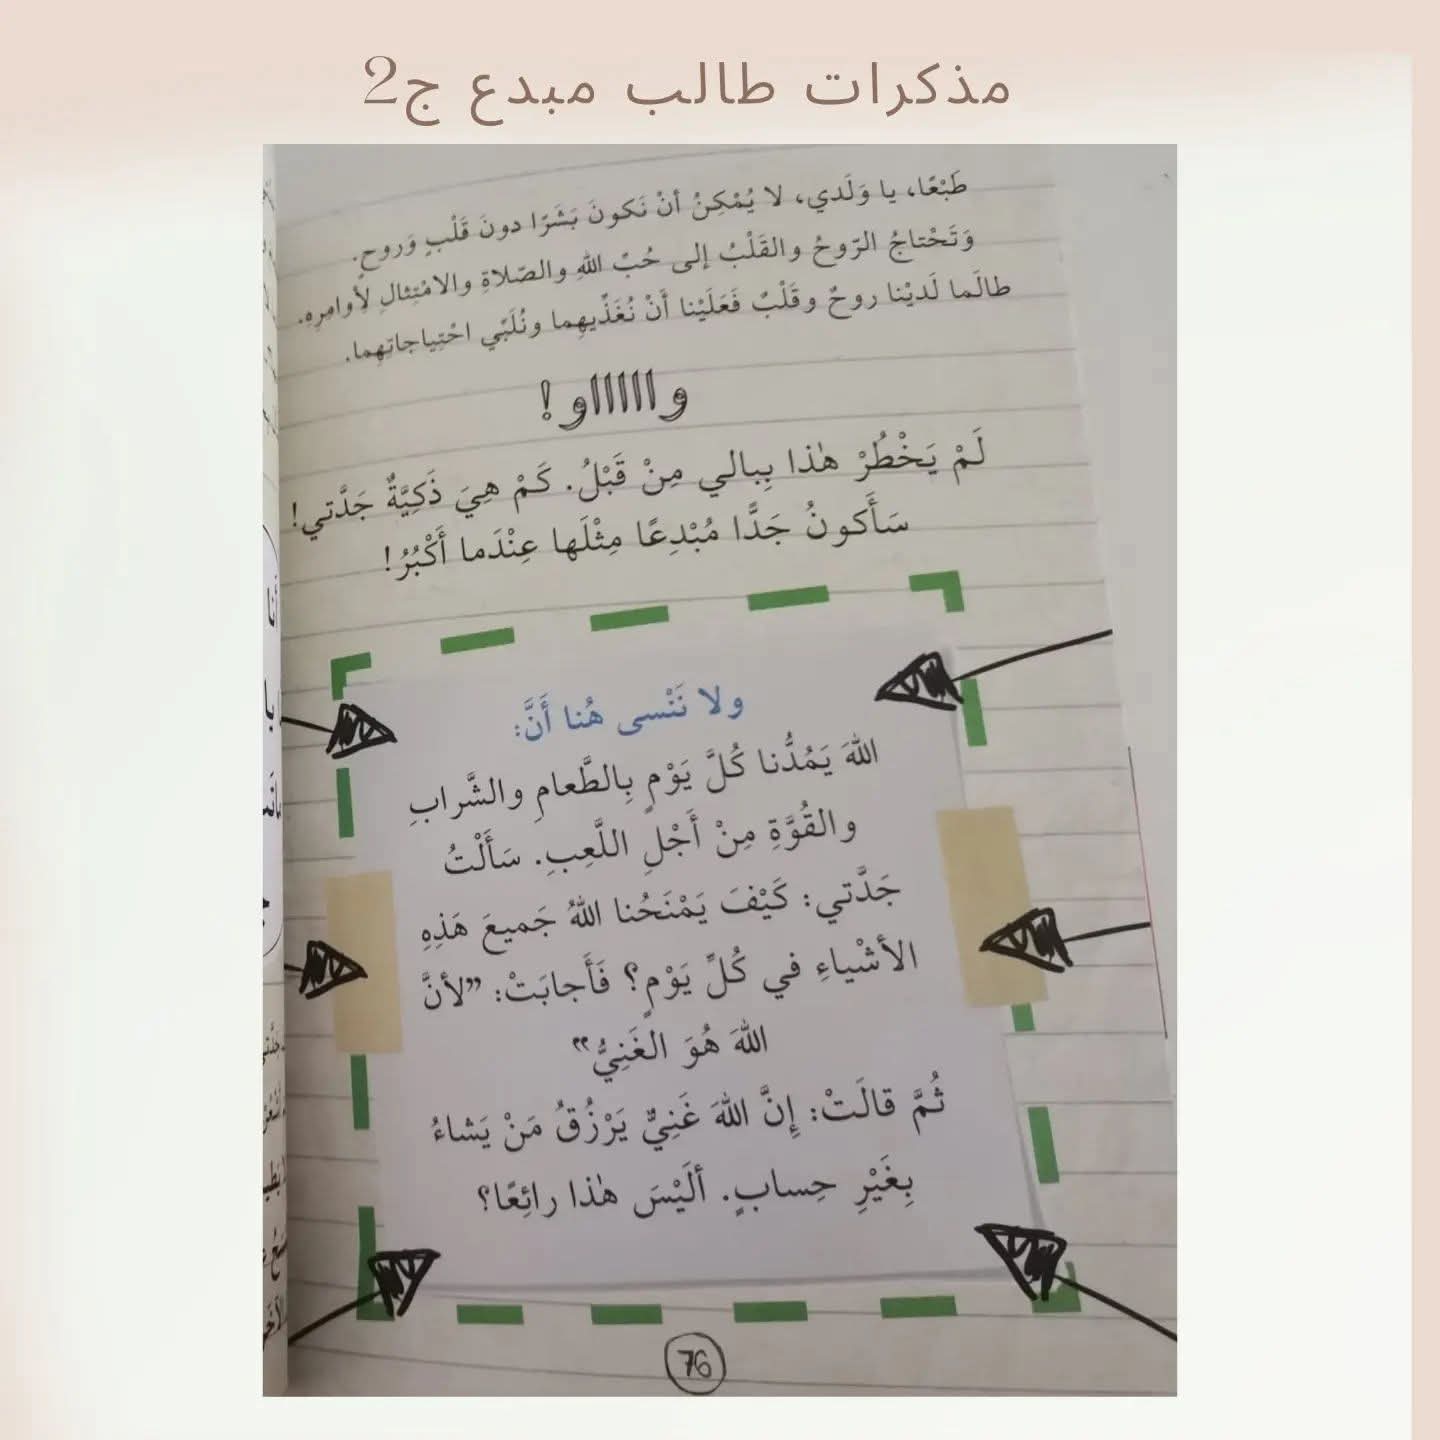 مذكرات طالب مبدع ج2
طَبْعًا، يا وَلَدي، لا يُمْكِنُ أنْ نَكونَ بَشَرًا دونَ قَلْبٍ وَروحٍ.
وَتَحْتاجُ الرّوحُ والقَلْبُ إلى حُبِّ اللهِ والصّلاةِ والامْتِثالِ لِأوامِرِهِ.
طالَما لَدَيْنا روحٌ وقَلْبٌ فَعَلَيْنا أَنْ نُغَذِّيهِما ونُلَبِّي احْتِياجاتِهِما.
واااااو!
لَمْ يَخْطُرْ هٰذا بِبالي مِنْ قَبْلُ. كَمْ هِيَ ذَكِيَّةٌ جَدَّتي!
سَأَكونُ جَدًّا مُبْدِعًا مِثْلَها عِنْدَما أَكْبُرُ!
ولا نَنْسى هُنا أَنَّ:
اللهَ يَمُدُّنا كُلَّ يَوْمٍ بِالطَّعامِ والشَّرابِ
والقُوَّةِ مِنْ أَجْلِ اللَّعِبِ. سَأَلْتُ
جَدَّتي: كَيْفَ يَمْنَحُنا اللهُ جَميعَ هَذِهِ
الأشْياءِ في كُلِّ يَوْمٍ؟ فَأَجابَتْ: ”لأنَّ
اللهَ هُوَ الغَنِيُّ“
ثُمَّ قالَتْ: إِنَّ اللهَ غَنِيٌّ يَرْزُقُ مَنْ يَشاءُ
بِغَيْرِ حِسابٍ. ألَيْسَ هٰذا رائِعًا؟
76